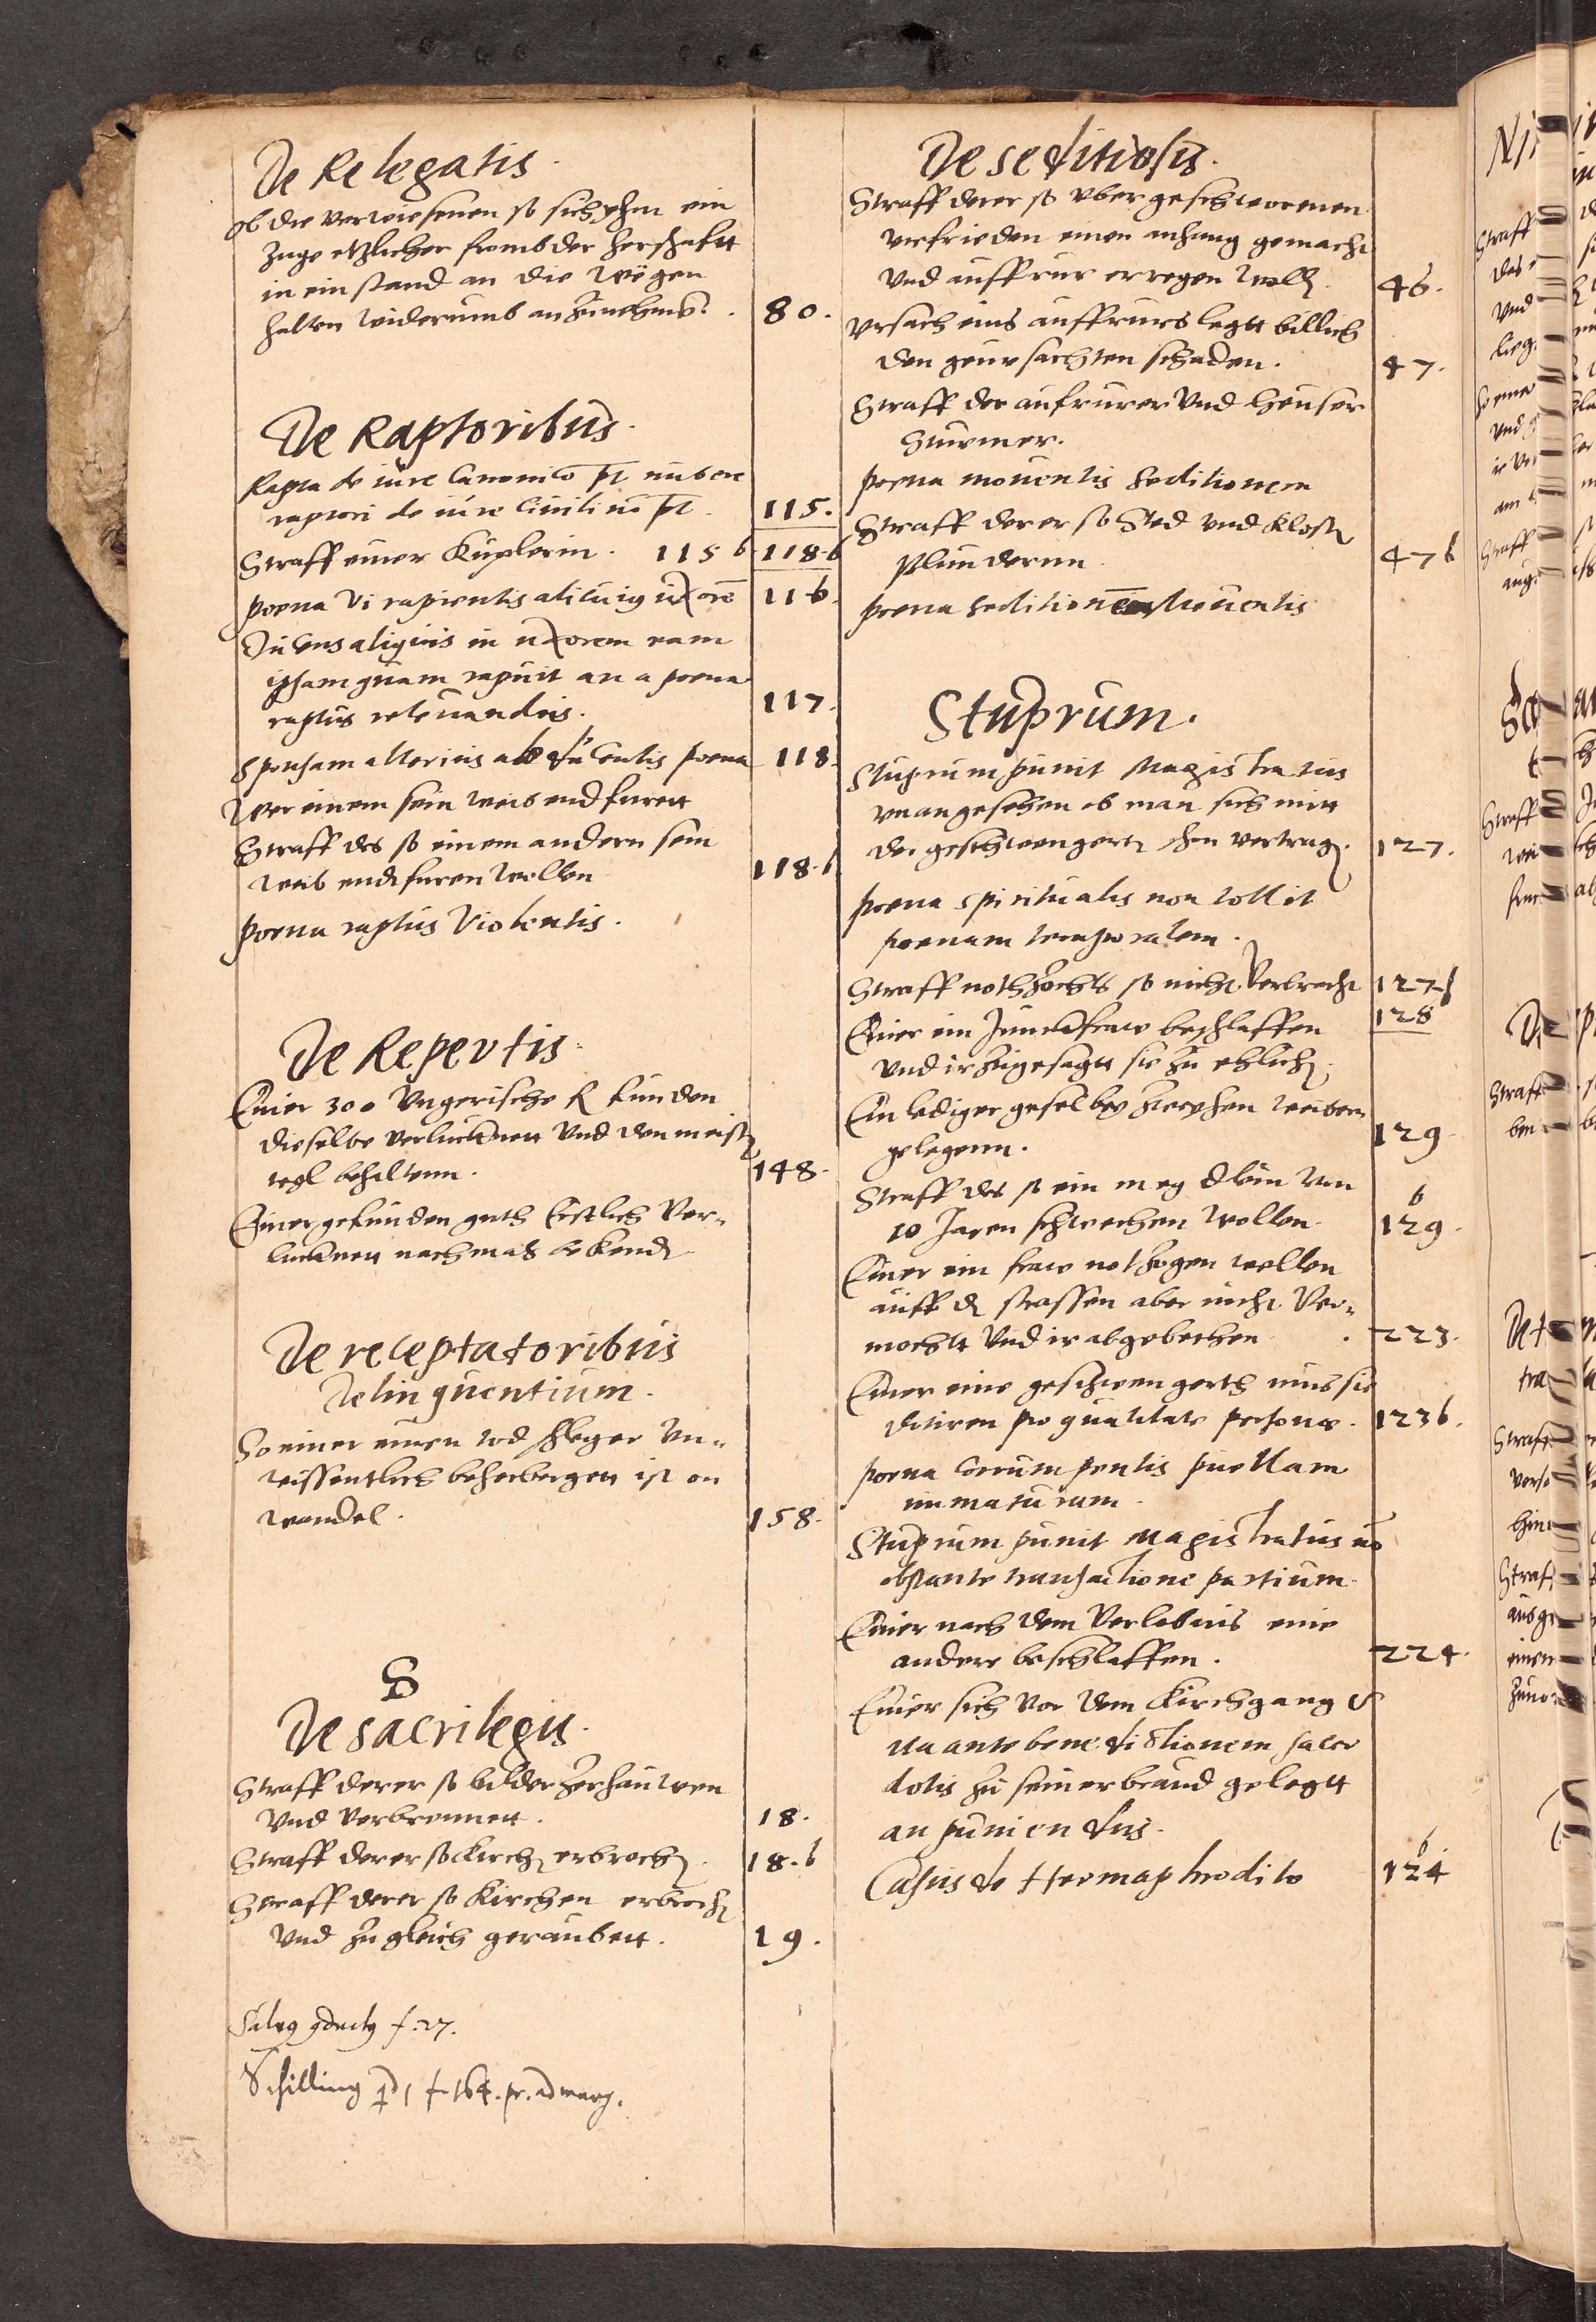 De Relegatis.
ob die verwiesenen so sich ihn ein
Zuge etzlicher frombder herschafft
in ein stand an die wegen
halten widerumb anzunehmen. 80.
De Raptoribus.
Rapta de iure Canonico pt nubere
raptori de iure Civili nō pt. 115.
Straff einer Kuplerin. 115 b 118.b
poena vi rapientis alicuiq uxorē 116.
Ducens aliquis in uxorem eam
ipsam quam rapuit an a poena
raptus relevandus. 117.
Sponsam alterius abducentis poena 118.
Wer einem sein weib endfurett
Straff des so einem andern sein
weib endfuren wollen 118.b
poena raptus violentis.
De Repertis.
Einer 300 Ungerische fl funden
dieselbe verlucknett und den meist
teyl behaltenn. 148.
Einer gefunden guth Erstlich ver„
lucknett nachmals bekend
De receptatoribus
delinquentium.
So einer einen todschleger un„
wissentlich beherbergett ist on
wandel. 158.
S
De sacrilegiis.
Straff derer so bilder zerhauwen
und verbrennett. 18.
Straff derer so Kirch erbroch. 18.b
Straff derer so Kirchen erbroch
und zugleich geraubett. 19.
f. 27.
Schilling f. 164. pr. ad marg.
De seditiosis.
Straff derer so uber geschworenen
urfrieden einen anhang gemacht
und auffrur erregen woll. 46.
Ursach eins auffrurs legtt billich
den geursachten schaden. 47.
Straff der aufrurer und heuser
Sturmer.
poena moventis seditionem
Straff derer so Sted und Klost
plundernn. 47 b
poena seditionem moventis
Stuprum.
Stuprum punit Magistratus
unangesehen ob man sich mitt
der geschwengert schon vertrag. 127.
poena spiritualis non tollit
poenam temporalem.
Straff nothzochts so nicht verbracht 127 b
Einer ein Junckfraw beschlaffen 128
und ir zugesagtt sie zu ehlich.
Ein lediger gesel bey zweyhen weibern
gelegenn. 129
Straff des so ein megdlein von
10 Jaren schwechen wollen. 129 b.
Einer ein fraw nothzogen wollen
auff d strassen aber nicht ver„
mochtt und ir abgebethen. 223.
Einer eine geschwengerth mus sie
dotiren pro qualitate personae. 123 b.
poena corrumpentis puellam
immaturam.
Stuprum punit Magistratus nō
obstante transactione partium.
Einer nach dem verlobnus eine
andere beschlaffen. 224.
Einer sich vor dem Kirchgang
ua ante benedictionem sacer
dotis zu seiner braud gelegtt
an puniendus.
Casus de Hermaphrodito 124 b